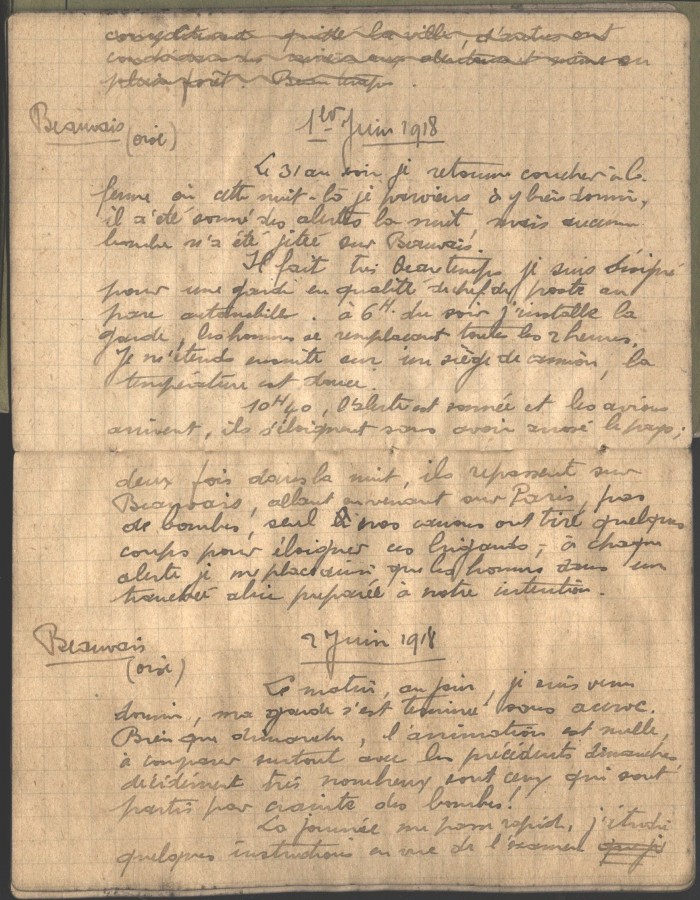 quitté la ville, d'autres ont
et même en
plein forêt. Beau temps.
Beauvais (oise) 1er Juin 1918
Le 31 au soir je retourne coucher à la
ferme où cette nuit-là je parviens à y bien dormir,
il a été sonné des alertes la nuit mais aucune
bombe n'a été jetée sur Beauvais.
Il fait très beau temps je suis désigné
pour une garde en qualité de chef de poste au
parc automobile. à 6H du soir j'installe la
garde, les hommes se remplaçant toutes les 2 heures.
Je m'étends ensuite sur un siège de camion, la
température est douce.
10H40, l'alerte est sonnée et les avions
arrivent, ils s'éloignent sans avoir arrosé le pays;
deux fois dans la nuit, ils repassent sur
Beauvais, allant ou venant sur Paris, pas
de bombes, seul nos canons ont tiré quelques
coups pour éloigner ces brigands; à chaque
alerte je me place ainsi que les hommes dans une
tranchée abri preparée à notre intention.
Beauvais (oise) 2 Juin 1918
Le matin, au jour, je suis venu
dormir, ma garde s'est terminée sans accroc.
Bien que dimanche, l'animation est nulle,
à comparer surtout avec les précédents dimanches
decidément très nombreux sont ceux qui sont
partis par crainte des bombes!
La journée me passe rapide, j'étudie
quelques instructions en vue de l'examen que je